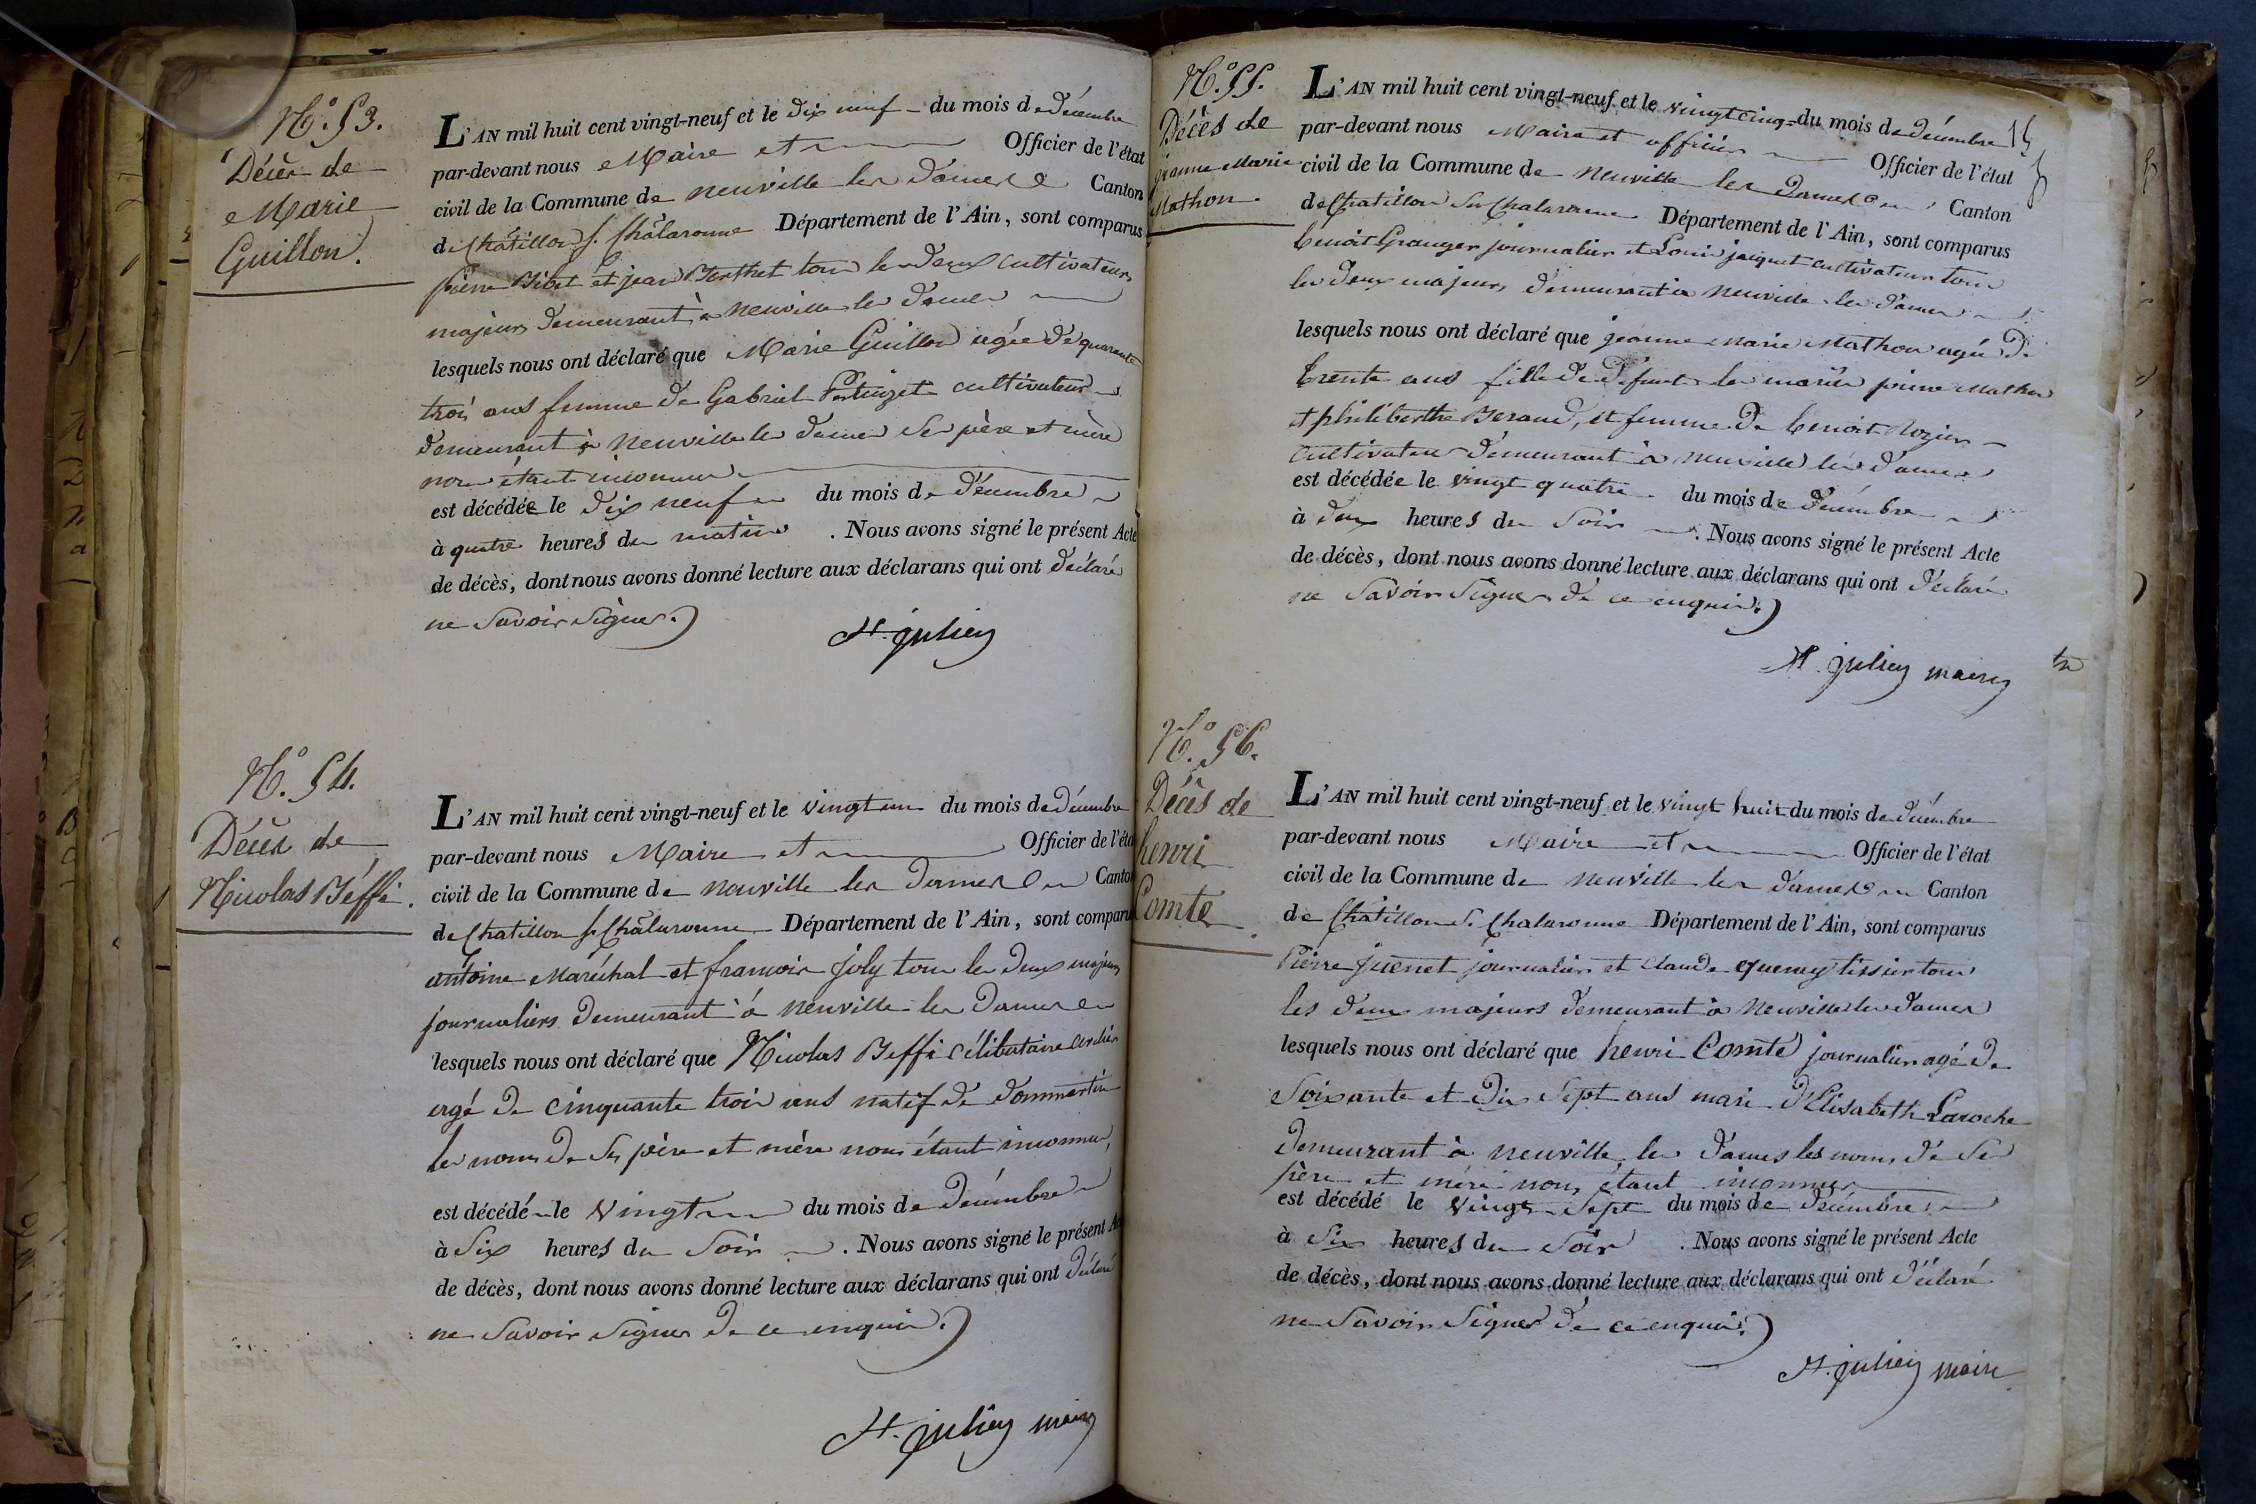 N.° 53.
Décès de
Marie
Guillon.
L'AN mil huit cent vingt-neuf et le dix neuf du mois de décembre
par-devant nous Maire et Officier de l'état
civil de la Commune de neuville les dames Canton
de Châtillon s. Châlaronne Département de l'Ain, sont comparus
pierre Bibet et jean Berthet tous les deux cultivateurs
majeurs demeurant à neuville les dames
lesquels nous ont déclaré que Marie Guillon agée de quarante
trois ans femme de Gabriel cultivateur
demeurant à neuville les dames ses père et mère
nous étant inconnus
est décédée le dix neuf du mois de décembre
à quatre heures du matin . Nous avons signé le présent Acte
de décès, dont nous avons donné lecture aux déclarans qui ont déclaré
ne savoir signer.
H. julien
N.° 54.
Décès de
Nicolas Béffi.
L'AN mil huit cent vingt-neuf et le vingt un du mois de décembre
par-devant nous Maire et Officier de l'état
civil de la Commune de neuville les dames Canton
de Chatillon s. Châlaronne Département de l'Ain, sont comparus
antoine Maréchal et francois joly tous les deux majeurs
journaliers demeurant à neuville les dames
lesquels nous ont déclaré que Nicolas Beffi célibataire
agé de cinquante trois ans natif de dommartin
les noms de ses père et mère nous étant inconnus,
est décédé le vingt du mois de decémbre
à six heures du soir . Nous avons signé le présent Acte
de décès, dont nous avons donné lecture aux déclarans qui ont déclaré
ne savoir signer de ce enquis.
H. julien maire
N.° 55.
Décès de
jeanne Marie
Mathon
L'AN mil huit cent vingt-neuf et le vingt cinq du mois de décembre
par-devant nous Maire et officier Officier de l'état
civil de la Commune de Neuville les dames Canton
de Chatillon sur Chalaronne Département de l'Ain, sont comparus
benoit Granger journalier et Louis jacquet cultivateur tous
les deux majeurs demeurant à neuville les dames
lesquels nous ont déclaré que jeanne Marie Mathon agée de
trente ans fille de défunts les mariés pierre Mathon
et philiberthe Beraud, et femme de benoit Rozier
cultivateur demeurant à neuville les dames
est décédée le vingt quatre du mois de décembre
à deux heures du soir . Nous avons signé le présent Acte
de décès, dont nous avons donné lecture aux déclarans qui ont déclaré
ne savoir signer de ce enquis.
H. julien maire
N.° 56.
Décès de
henri
Comte
L'AN mil huit cent vingt-neuf et le vingt huit du mois de décembre
par-devant nous Maire et Officier de l'état
civil de la Commune de neuville les dames Canton
de Châtillon s. Chalaronne Département de l'Ain, sont comparus
Pierre juenet journalier et Claude tissier tous
les deux majeurs demeurant à Neuville les dames
lesquels nous ont déclaré que henri Comte journalier agé de
soixante et dix sept ans mari d'Elisabeth Laroche
demeurant à neuville les dames les noms de ses
père et mère nous étant inconnus
est décédé le vingt sept du mois de décembre
à six heures du soir . Nous avons signé le présent Acte
de décès, dont nous avons donné lecture aux déclarans qui ont déclaré
ne savoir signer de ce enquis.
H. julien maire